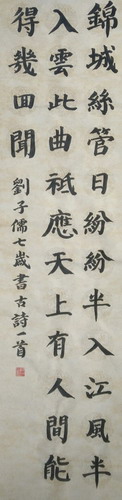 錦城絲管日紛紛半入江風半
入雲此曲祗應天上有人間能
得幾回聞
劉子儒七歲書古詩一首